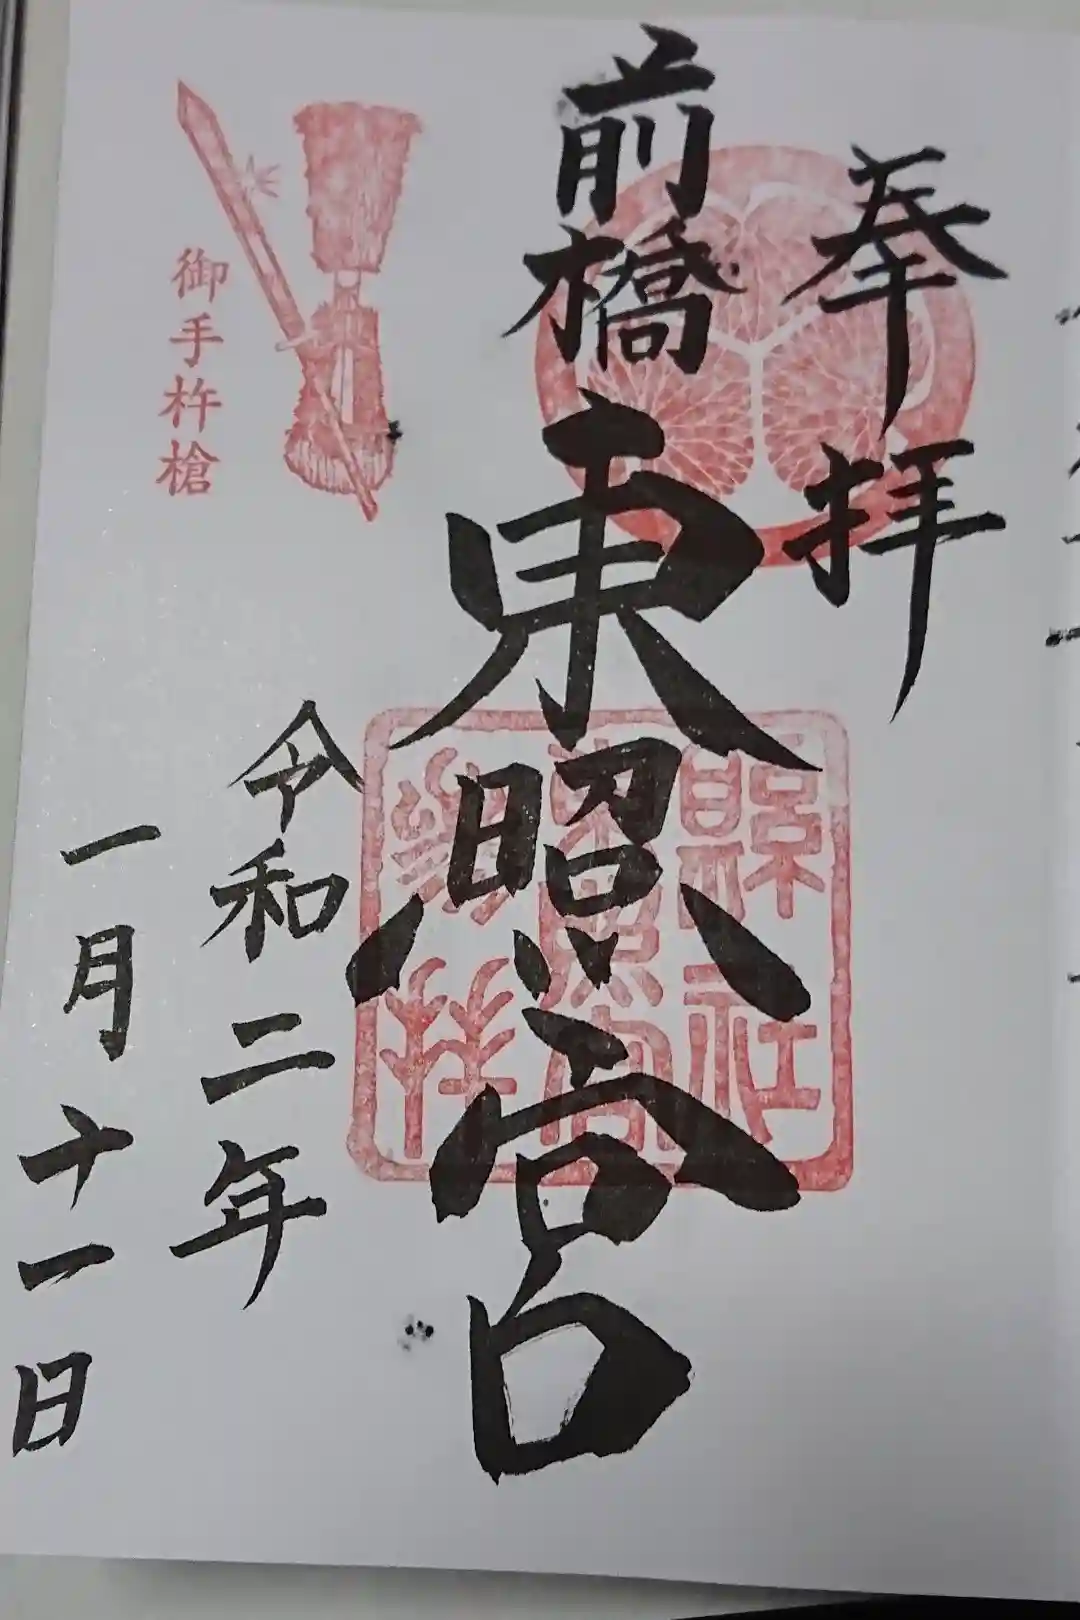 奉拝
前橋東照宮
令和二年
一月十一日
御手杵槍
縣社
東照宮